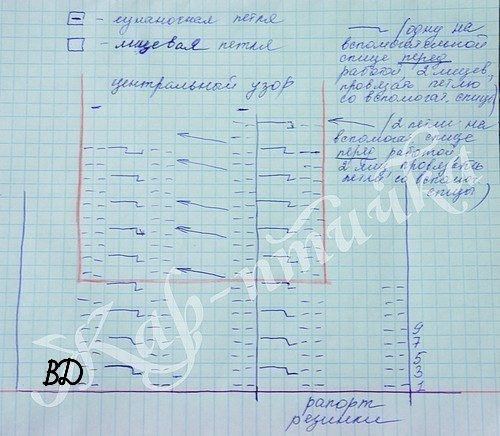 - изнаночная петля
- лицевая петля
центральный узор
(одну на
вспомогательной
спице перед
работой 2 лицев
провязать петлю
со вспомогат. спицы)
(2 петли на
вспомогат спице
перед работой
2 лиц провязать
петли со вспомог
спицы)
Жар-птичка
9
7
5
3
1
BD
рапорт
резинки